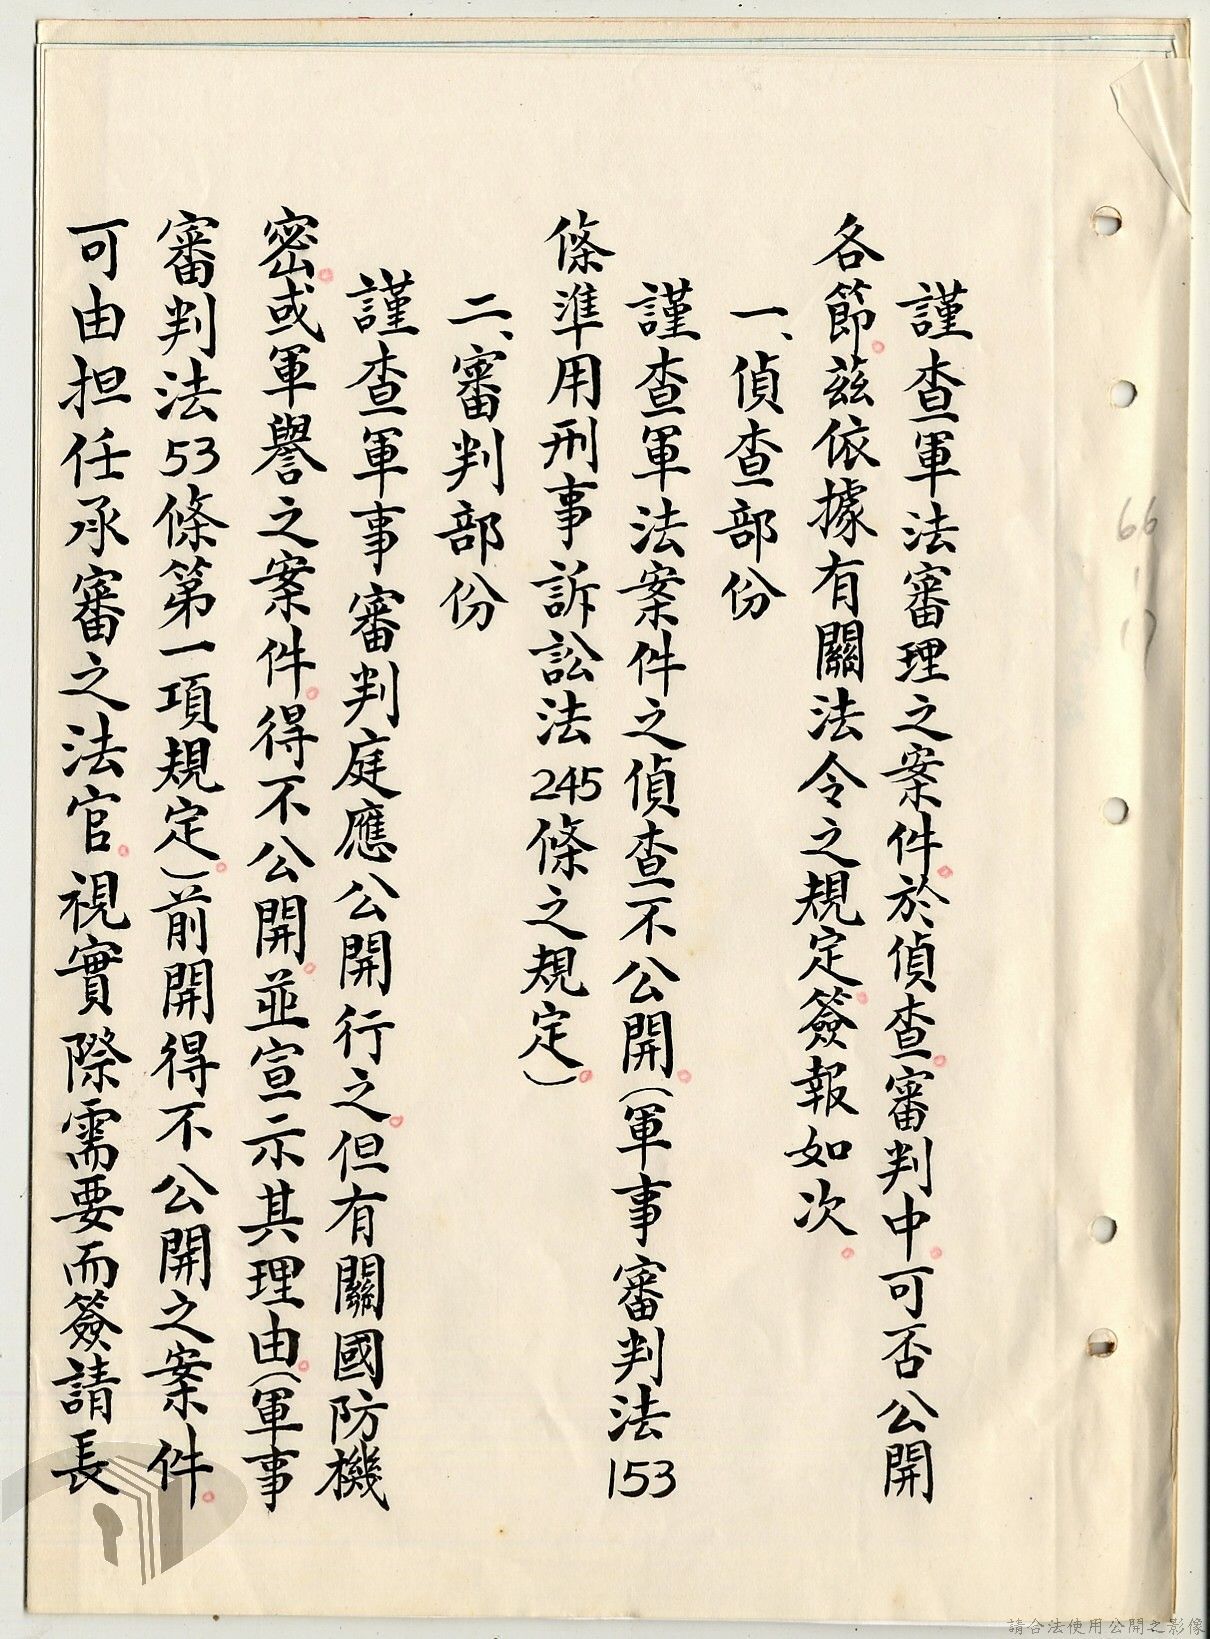 謹查軍法審理之案件。於偵查。審判中。可否公開
各節。茲依據有關法令之規定。簽報如次。
一、偵查部份
謹查軍法案件之偵查不公開。(軍事審判法153
條準用刑事訴訟法245條之規定。)
二、審判部份
謹查軍事審判庭應公開行之。但有關國防機
密。或軍譽之案件。得不公開。並宣示其理由。(軍事
審判法53條第一項規定。)前開得不公開之案件。
可由担任承審之法官。視實際需要而簽請長
66
請合法使用公開之影像